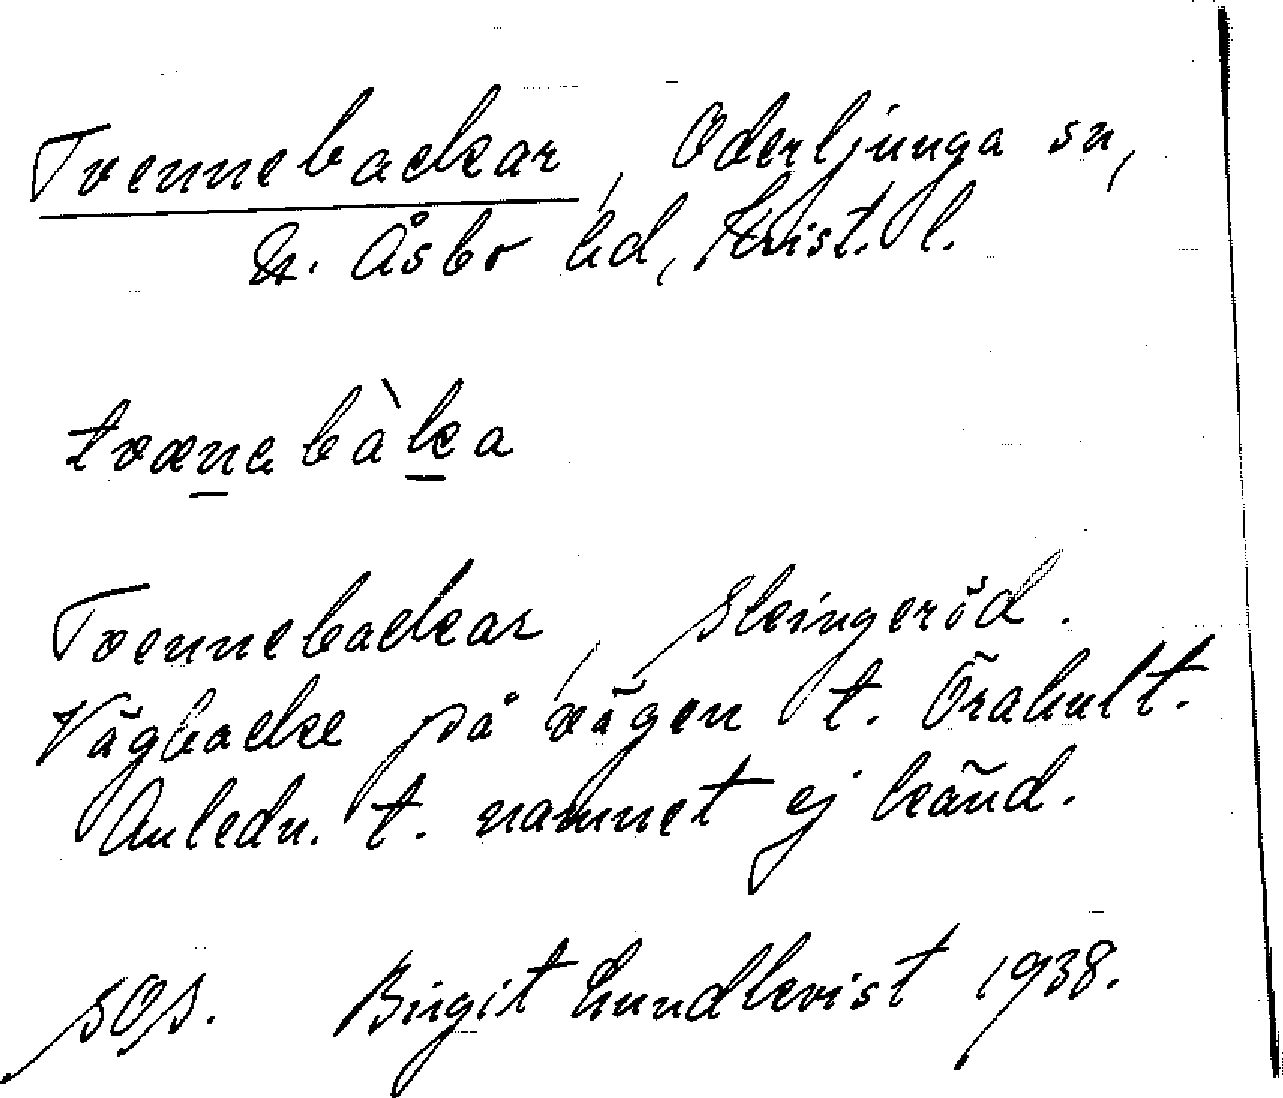 Tvennebackar, Oderljunga sn,
N. Åsbo hd, Krist. l.
tvænebàka
Tvennebackar, Slingeröd.
Vägbacke på vägen t. Örahult.
Anledn. t. namnet ej känd.
SOS. Birgit Lundkvist 1938.